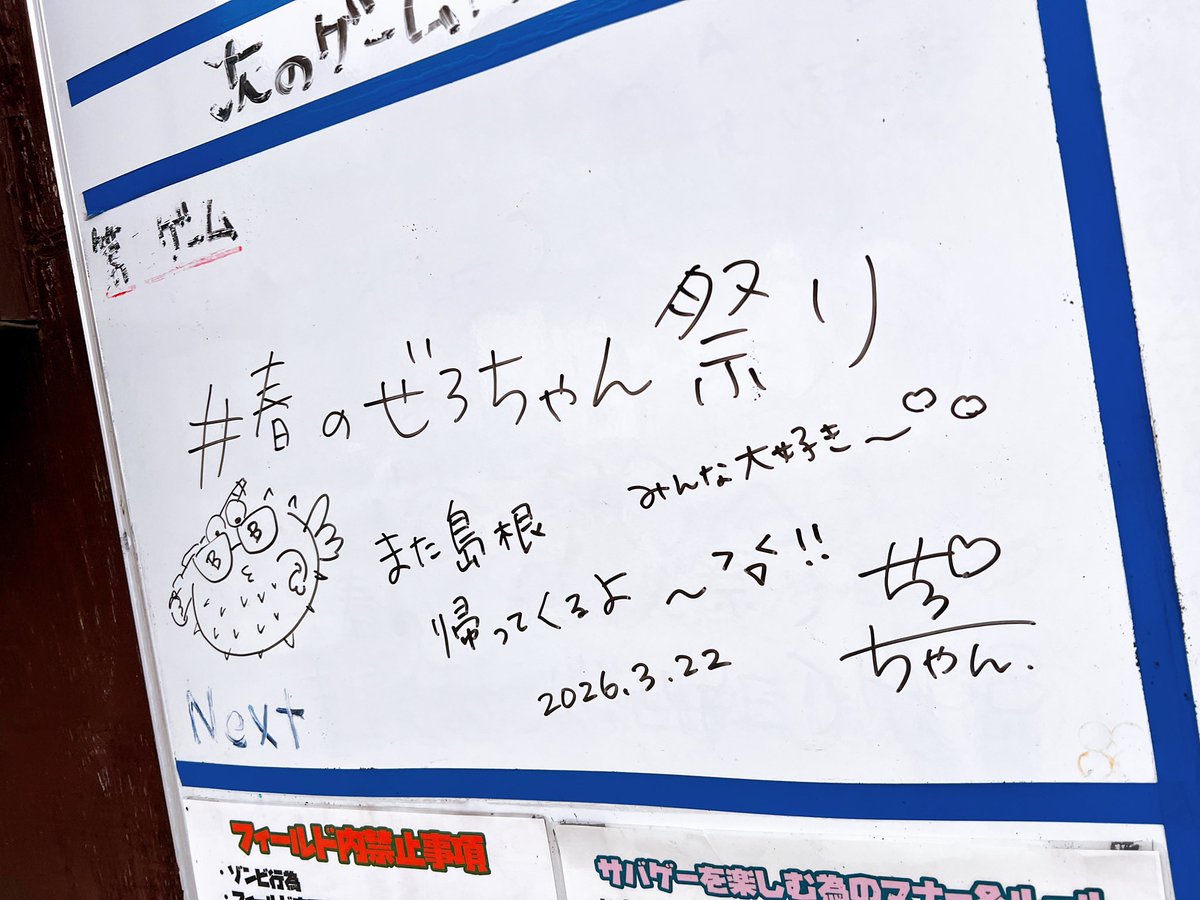 次のゲーム
第 ゲーム
#春のぜろちゃん祭り
みんな大好き〜♡♡
また島根
帰ってくるよ〜!!
2026.3.22
ぜろ♡
ちゃん.
B B
Next
フィールド内禁止事項
・ゾンビ行為
サバゲーを楽しむ為のマナー&ルール